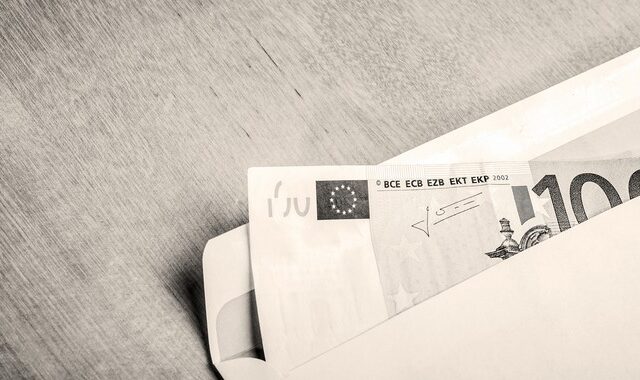 © BCE ECB EZB EKT EKP 2002
100